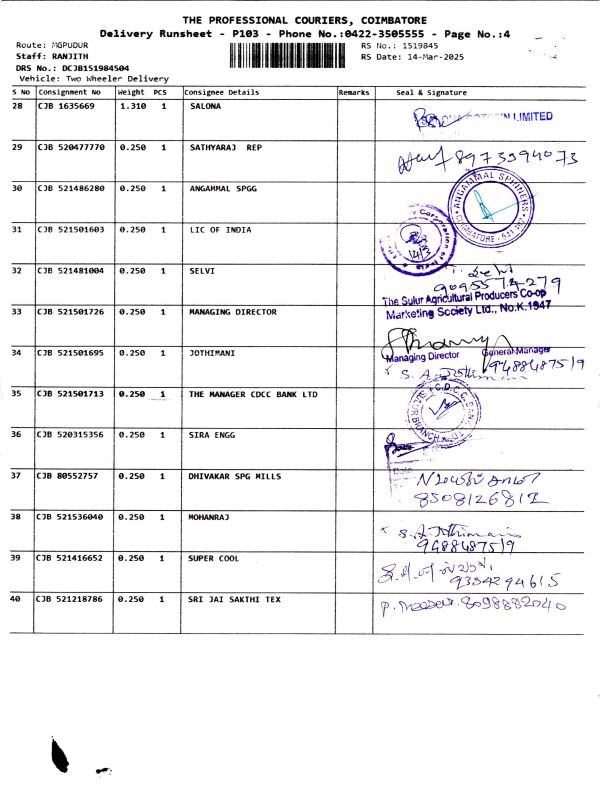 THE PROFESSIONAL COURIERS, COIMBATORE
Delivery Runsheet - P103 - Phone No.:0422-3505555 - Page No.:4
Route: MGPUDUR
RS No.: 1519845
Staff: RANJITH
RS Date: 14-Mar-2025
DRS No.: DCJB151984504
Vehicle: Two Wheeler Delivery
S No Consignment No Weight PCS Consignee Details Remarks Seal & Signature
28 CJB 1635669 1.310 1 SALONA
LIMITED
29 CJB 520477770 0.250 1 SATHYARAJ REP
8973394073
30 CJB 521486280 0.250 1 ANGAMMAL SPGG
ANGAMMAL SPINNERS
COIMBATORE
31 CJB 521501603 0.250 1 LIC OF INDIA
Corporation of India
14/3
32 CJB 521481004 0.250 1 SELVI
The Sulur Agricultural Producers Co-op
Marketing Society Ltd., No.K.1947
33 CJB 521501726 0.250 1 MANAGING DIRECTOR
Managing Director General Manager
34 CJB 521501695 0.250 1 JOTHIMANI
9488487519
S. A. Jothimani
35 CJB 521501713 0.250 1 THE MANAGER CDCC BANK LTD
C.D.C.C. BANK
BRANCH
36 CJB 520315356 0.250 1 SIRA ENGG
Date
37 CJB 80552757 0.250 1 DHIVAKAR SPG MILLS
38 CJB 521536040 0.250 1 MOHANRAJ
S. A. Jothimani
9488487519
39 CJB 521416652 0.250 1 SUPER COOL
9354294615
40 CJB 521218786 0.250 1 SRI JAI SAKTHI TEX
8098882040